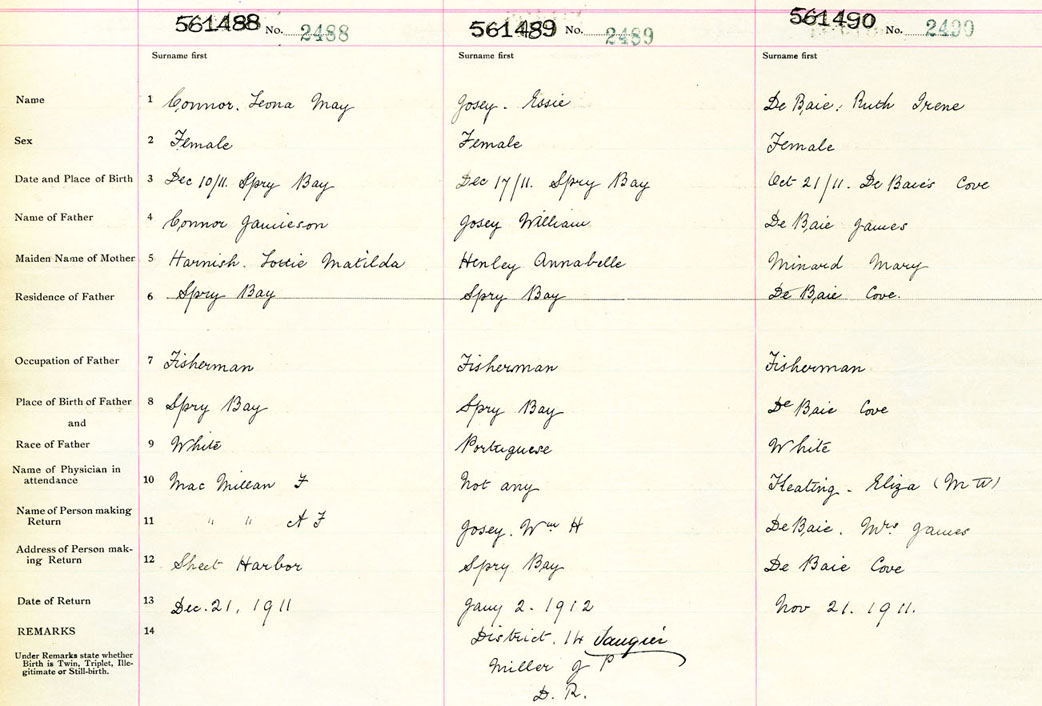 561488 No. 2488 561489 No. 2489 561490 No. 2490
Surname first Surname first Surname first
Name 1 Connor. Leona May Josey. Essie De Baie. Ruth Irene
Sex 2 Female Female Female
Date and Place of Birth 3 Dec 10/11. Spry Bay Dec 17/11. Spry Bay Oct 21/11. De Baie's Cove
Name of Father 4 Connor Jamieson Josey William De Baie James
Maiden Name of Mother 5 Harnish. Lottie Matilda Henley Annabelle Minard Mary
Residence of Father 6 Spry Bay Spry Bay De Baie Cove.
Occupation of Father 7 Fisherman Fisherman Fisherman
Place of Birth of Father 8 Spry Bay Spry Bay De Baie Cove
and
Race of Father 9 White Portuguese White
Name of Physician in
attendance 10 Mac Millan F Not any Keating - Eliza (M W)
Name of Person making
Return 11 " " A F Josey. Wm H De Baie. Mrs James
Address of Person mak-
ing Return 12 Sheet Harbor Spry Bay De Baie Cove
Date of Return 13 Dec. 21, 1911 Jany 2. 1912 Nov 21. 1911.
REMARKS 14 District. 14
Under Remarks state whether
Birth is Twin, Triplet, Ille-
gitimate or Still-birth.
Miller J P
D. R.